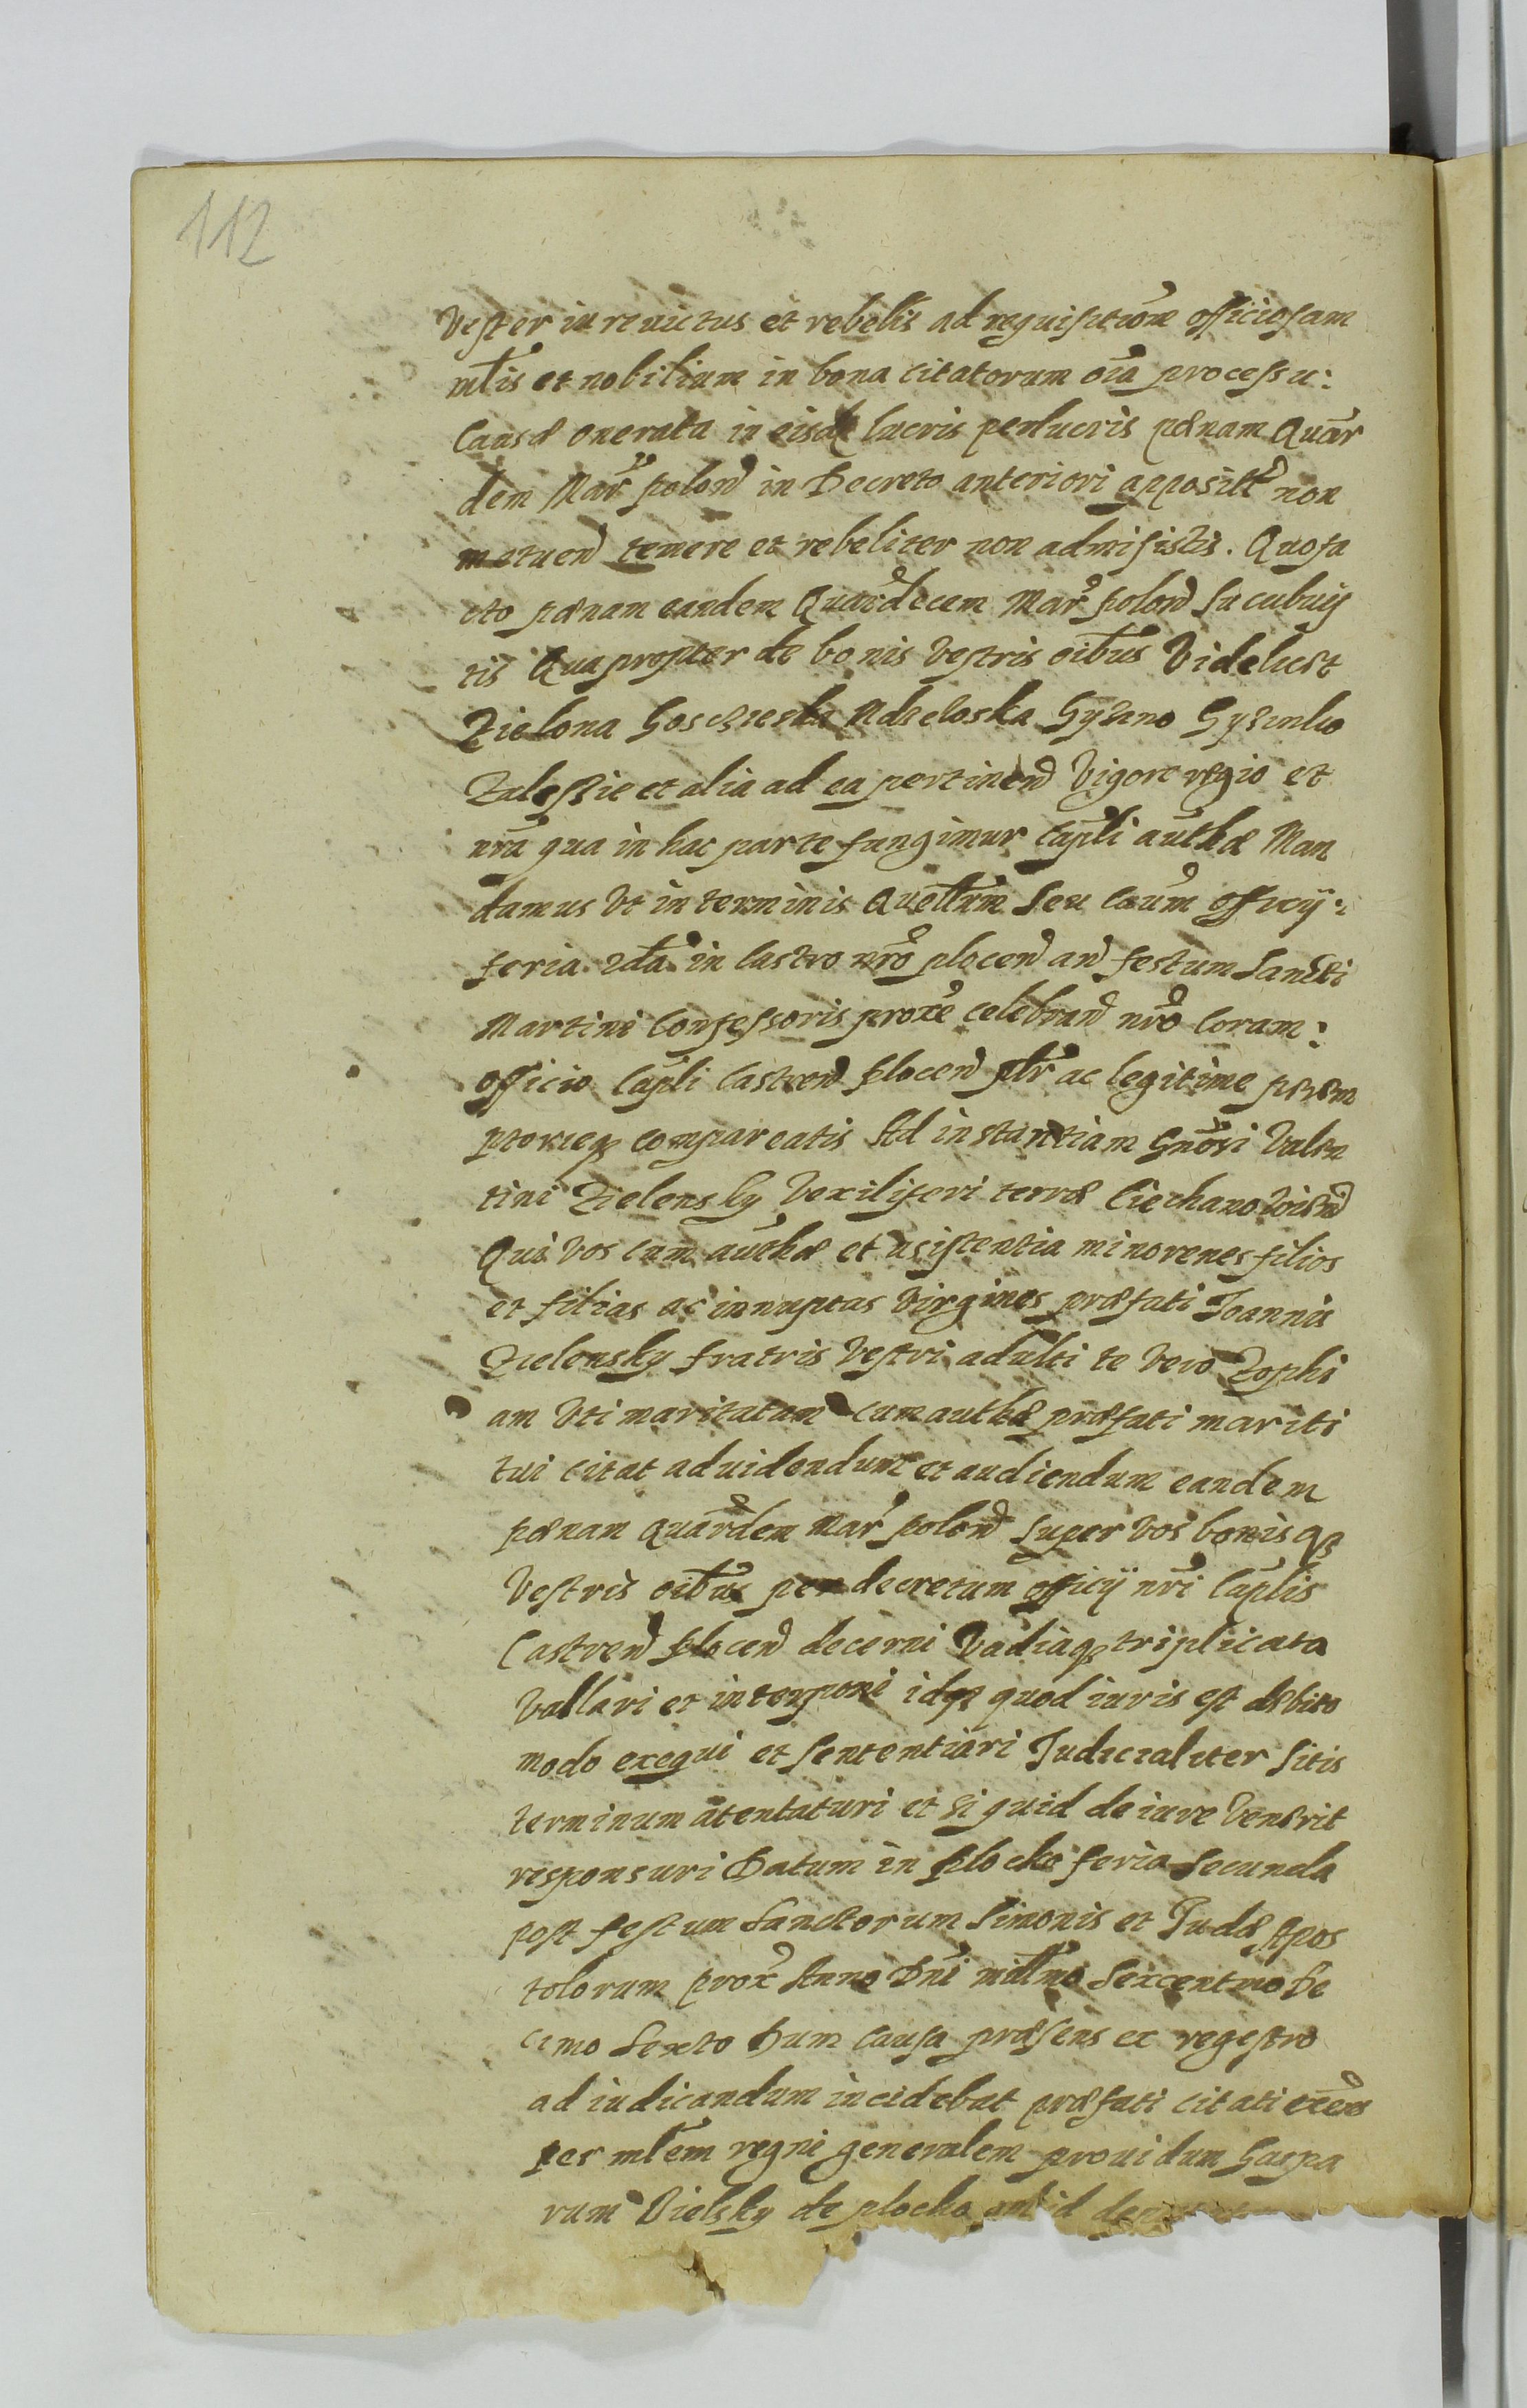 112
Vester iure uictus et rebelis ad requisitione͂ officiosam
mltis et nobilium in bona citatorum oia͂ processu:
Causæ onerata in eisdẽ lucris perlucris pænam Quar͂
dem Mar͂ polon͂ in Decreto anteriori apposit͂ non
metuen͂ temere et rebeliter non admisistis. Quofa
cto pænam eandem Quar͂decem Mar͂ polon͂ Sucubuij
tis Quapropter de bonis Vestris oibus͂ Videlicet
Zielona Adzeloska Gyzino Gyzinko
Zalessie et alia ad ea pertinen͂ Vigore regio et
nra͂ qua in hac parte fungimur Capli͂ auth͂æ Man
damus Vt in terminis Querlrm͂ Seu Caum͂ officij:
feria 2da͂ in Castro nro͂ plocen͂ an͂ festum Sancti
Martini Confessoris proxe͂ celebran͂ nro͂ Coram:
officio Capli͂ Castren͂ plocen͂ plr͂ ac legitime pærem
ptorieq; compareatis Ad instantiam Gnosi͂ Valen
tini Zielensky Vexiliferi terræ Ciechanovien͂
Qui Vos cum auth͂æ et asistentia minorenes filios
et filias ac innuptas Virgines præfati Joannis
Zielensky fratris Vestri adulti te Vero Zophi
am Vti maritatam cum auth͂æ præfati mariti
tui citat ad uidendum et audiendum eandem
pænam quar͂dem Mar͂ polon͂ Super Vos bonisq;
Vestris oibus͂ per decretum officij nri͂ Caplis͂
Castren͂ plocen͂ decerni Vadiaq; triplicata
Vallari et interponi idq; quod iuris est debito
modo exequi et Sententiari Judicialiter Sitis
terminum atentaturi et Si quid de iure Venerit
responsuri Datum in plocko feria Secunda
post festum Sanctorum Simonis et Judæ Apos
tolorum prox͂ Anno Dni͂ millmo͂ Sexcentmo De
cimo Sexto Dum Causa præsens ex regestro
ad iudicandum incidebat præfati citati
per mlem͂ regni generalem prouidum Gaspa
rum Bielsky de plocko ad id